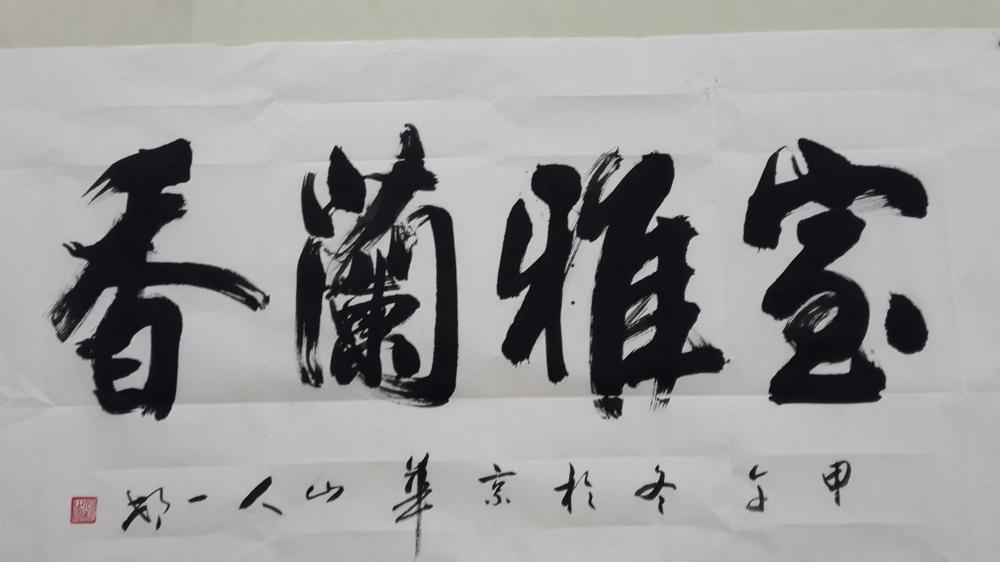 室雅蘭香
甲午冬於京華山人一郑